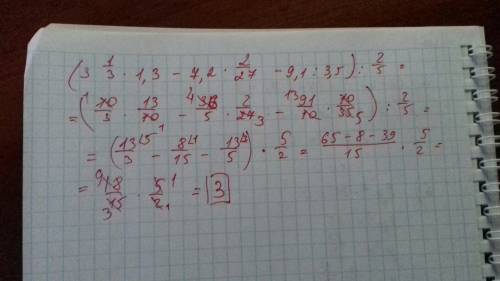 (3 1/3 · 1,3 − 7,2 · 2/27 − 9,1 : 3,5) : 2/5 =
= (10/3 · 13/10 − 36/5 · 2/27 − 91/10 · 10/35) : 2/5 =
= (13/3 − 8/15 − 13/5) · 5/2 = (65 − 8 − 39)/15 · 5/2 =
= 18/15 · 5/2 = 3